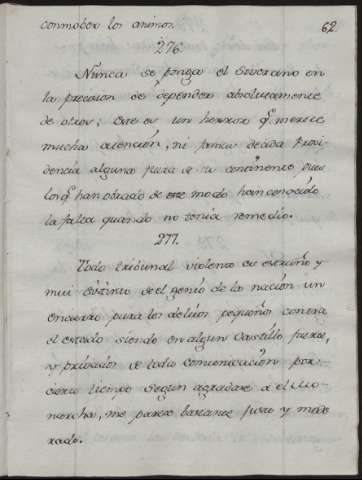 conmober los animos.
62.
276.
Nunca se ponga el Soverano en
la precision de depender absolutamente
de otros; este es un herror q.e merece
mucha atencion, ni jamas decida Provi-
dencia alguna fuera de su continente pues
los q.e han obrado de este modo han conocido
la falta quando no tenia remedio.
277.
Todo tribunal violento es extraño y
mui distinto de el genio de la nacion un
encierro para los delitos pequeños contra
el estado siendo en algun Castillo fuerte,
y privados de toda comunicacion por
cierto tiempo segun agradare a el Mo-
narcha, me parece bastante justo y mode
rado.